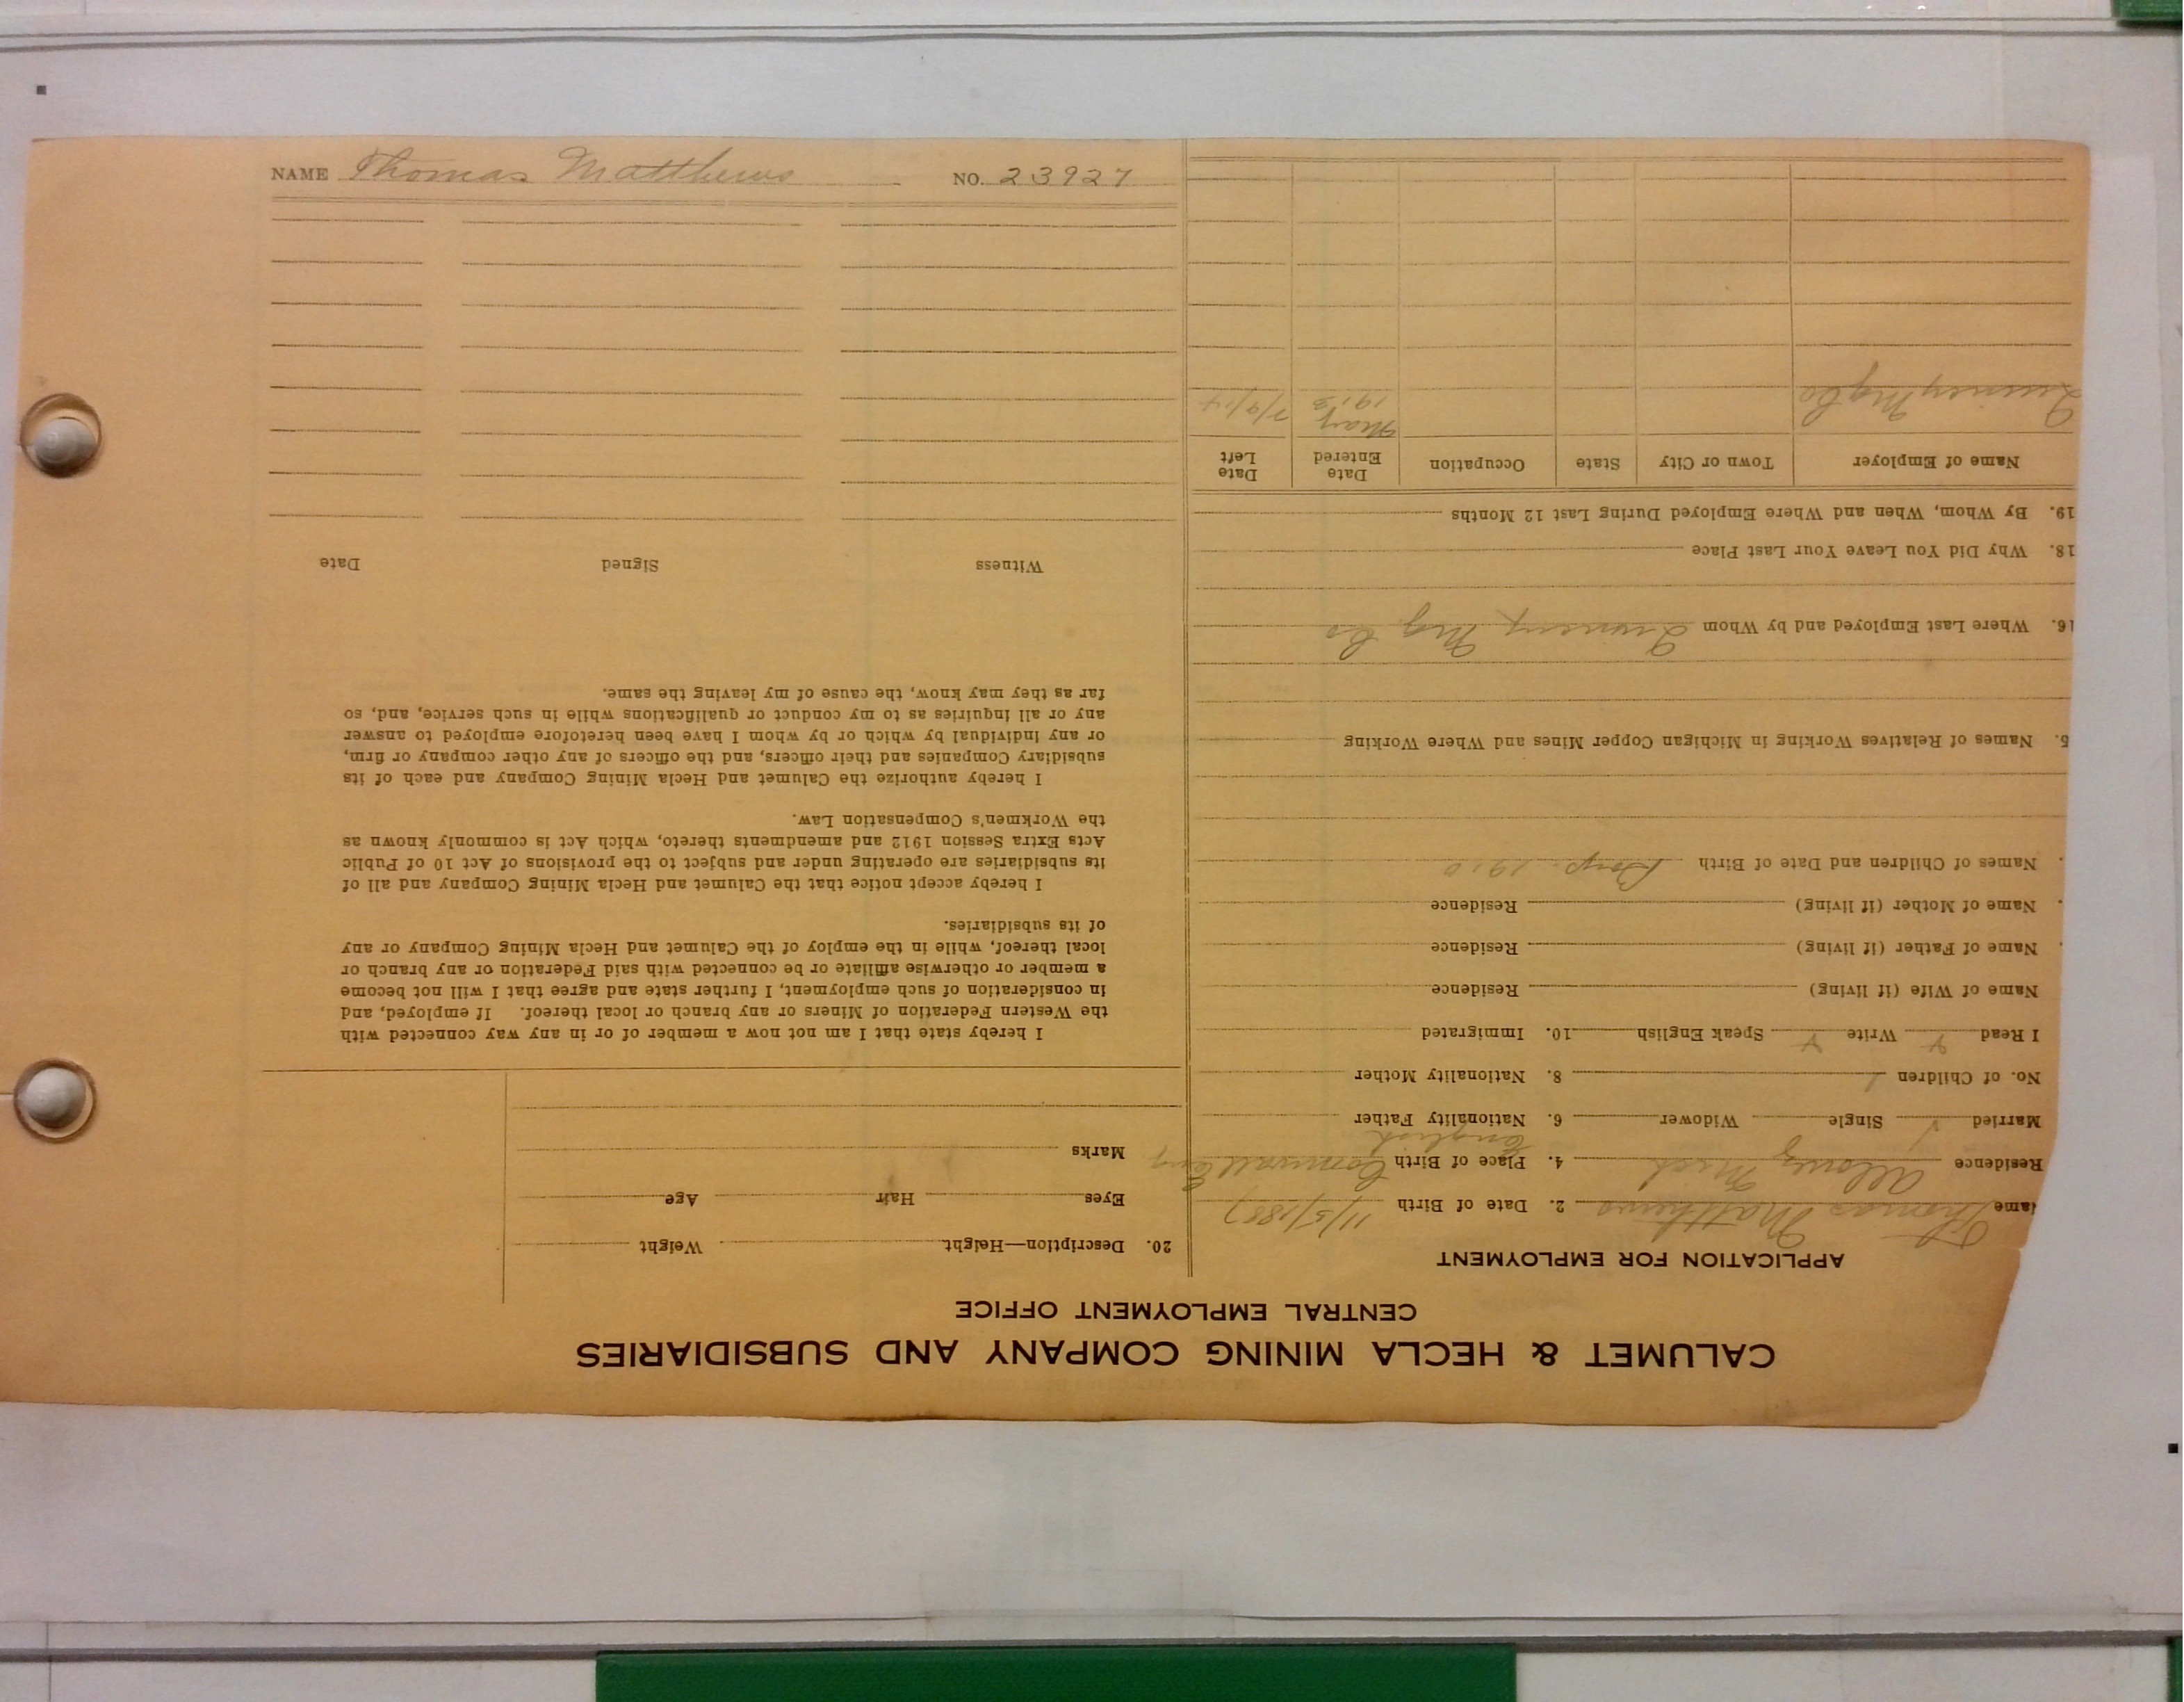 NAME Thomas Matthews NO. 23927
CALUMET & HECLA MINING COMPANY AND SUBSIDIARIES
CENTRAL EMPLOYMENT OFFICE
APPLICATION FOR EMPLOYMENT
Name Thomas Matthews 2. Date of Birth 11/5/1887
Residence Allouez Mich 4. Place of Birth Cornwall Eng
English
Married Y Single Widower 6. Nationality Father
No. of Children 1 8. Nationality Mother
I Read Y Write Y Speak English 10. Immigrated
Name of Wife (if living) Residence
. Name of Father (if living) Residence
. Name of Mother (if living) Residence
. Names of Children and Date of Birth Boy. 1910
5. Names of Relatives Working in Michigan Copper Mines and Where Working
16. Where Last Employed and by Whom Quincy Mg Co
18. Why Did You Leave Your Last Place
19. By Whom, When and Where Employed During Last 12 Months
Name of Employer Town or City State Occupation Date Entered Date Left
Quincy Mg Co 1913 7/9/14
20. Description—Height Weight
Eyes Hair Age
Marks
I hereby state that I am not now a member of or in any way connected with
the Western Federation of Miners or any branch or local thereof. If employed, and
in consideration of such employment, I further state and agree that I will not become
a member or otherwise affiliate or be connected with said Federation or any branch or
local thereof, while in the employ of the Calumet and Hecla Mining Company or any
of its subsidiaries.
I hereby accept notice that the Calumet and Hecla Mining Company and all of
its subsidiaries are operating under and subject to the provisions of Act 10 of Public
Acts Extra Session 1912 and amendments thereto, which Act is commonly known as
the Workmen's Compensation Law.
I hereby authorize the Calumet and Hecla Mining Company and each of its
subsidiary Companies and their officers, and the officers of any other company or firm,
or any individual by which or by whom I have been heretofore employed to answer
any or all inquiries as to my conduct or qualifications while in such service, and, so
far as they may know, the cause of my leaving the same.
Witness Signed Date